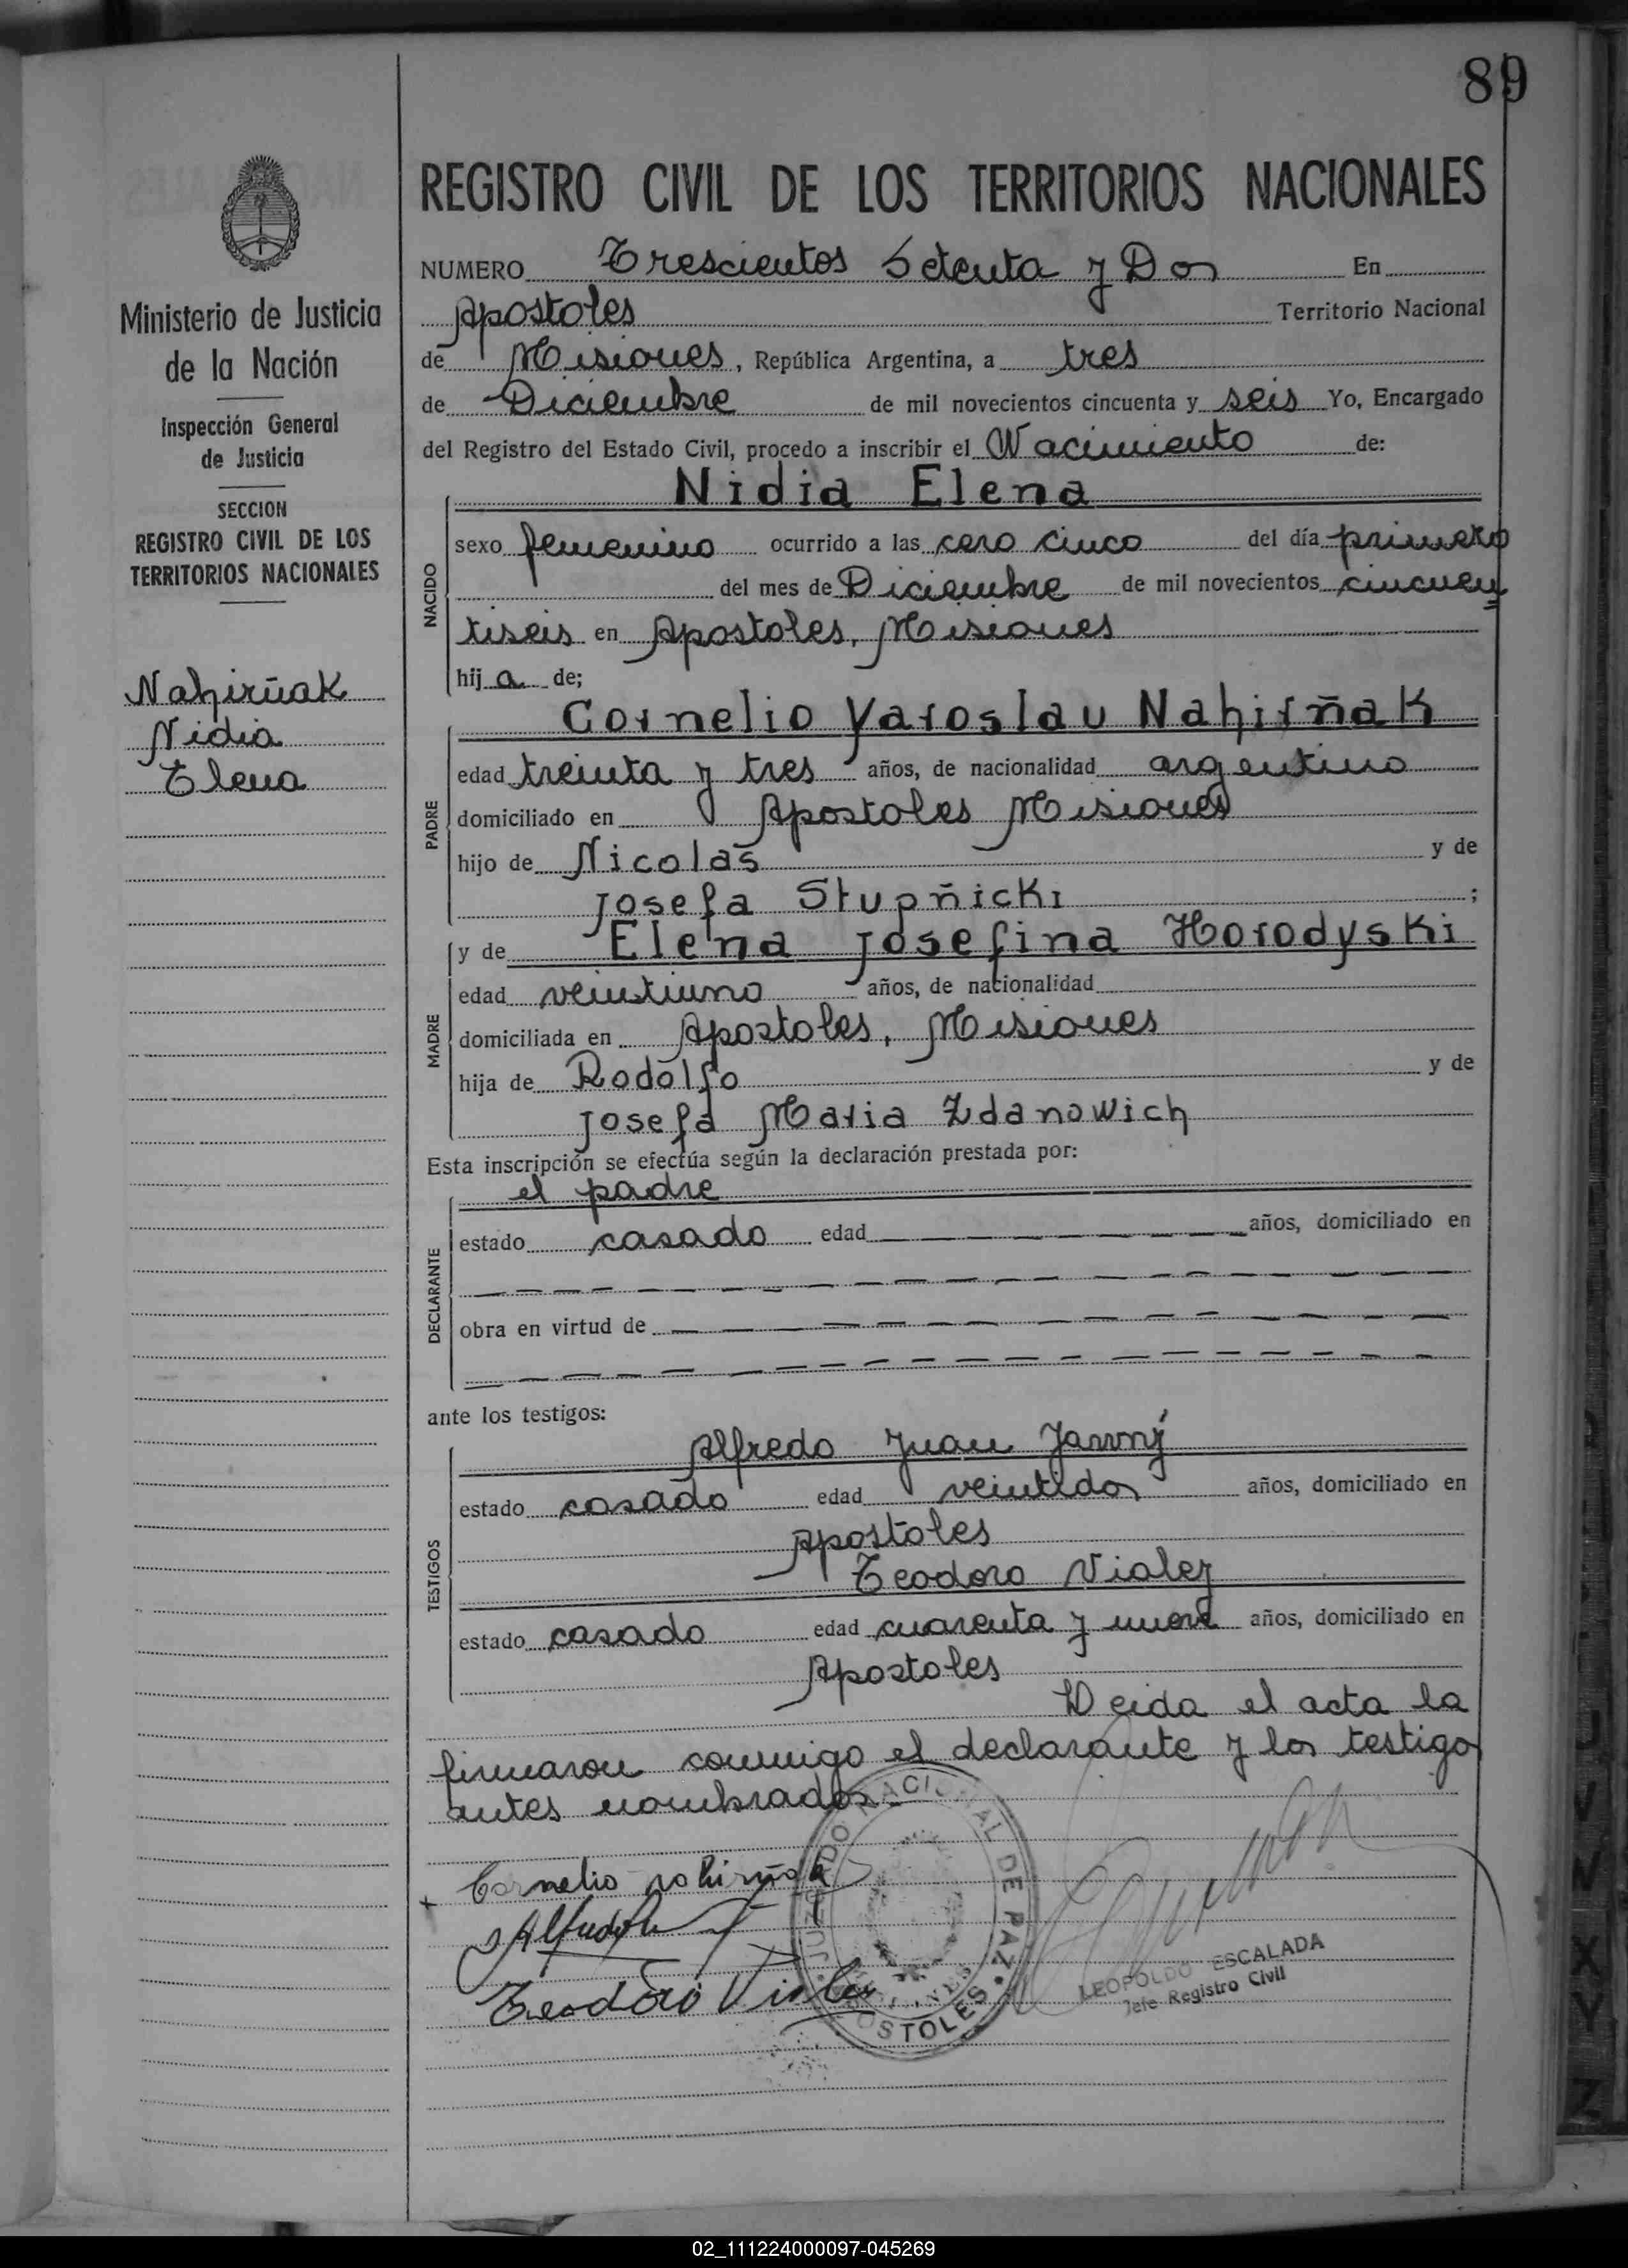 89
REGISTRO CIVIL DE LOS TERRITORIOS NACIONALES
Ministerio de Justicia
de la Nación
Inspección General
de Justicia
SECCION
REGISTRO CIVIL DE LOS
TERRITORIOS NACIONALES
Nahirñak
Nidia
Elena
NUMERO Trescientos Setenta y Dos En
Apostoles Territorio Nacional
de Misiones, República Argentina, a tres
de Diciembre de mil novecientos cincuenta y seis Yo, Encargado
del Registro del Estado Civil, procedo a inscribir el Nacimiento de:
NACIDO
Nidia Elena
sexo femenino ocurrido a las cero cinco del día primero
del mes de Diciembre de mil novecientos cincuen
tiseis en Apostoles, Misiones
hija de;
PADRE
Cornelio Yaroslau Nahirñak
edad treinta y tres años, de nacionalidad argentino
domiciliado en Apostoles Misiones
hijo de Nicolas y de
Josefa Stupñicki ;
MADRE
y de Elena Josefina Horodyski
edad veintiuno años, de nacionalidad
domiciliada en Apostoles, Misiones
hija de Rodolfo y de
Josefa Maria Zdanowich
Esta inscripción se efectúa según la declaración prestada por:
DECLARANTE
el padre
estado casado edad años, domiciliado en
obra en virtud de
ante los testigos:
TESTIGOS
Alfredo Juan
estado casado edad veintidos años, domiciliado en
Apostoles
Teodoro Vialey
estado casado edad cuarenta y nueve años, domiciliado en
Apostoles
Leida el acta la
firmaron conmigo el declarante y los testigo
antes nombrados.-
Cornelio Nahirñak
Teodoro
JUZGADO NACIONAL DE PAZ
APOSTOLES
LEOPOLDO ESCALADA
Jefe Registro Civil
02_111224000097-045269